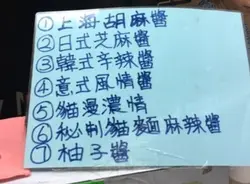 ①上海胡麻醬
②日式芝麻醬
③韓式辛辣醬
④意式風情醬
⑤貓漫濃情
⑥松阪貓麵麻辣醬
⑦柚子醬